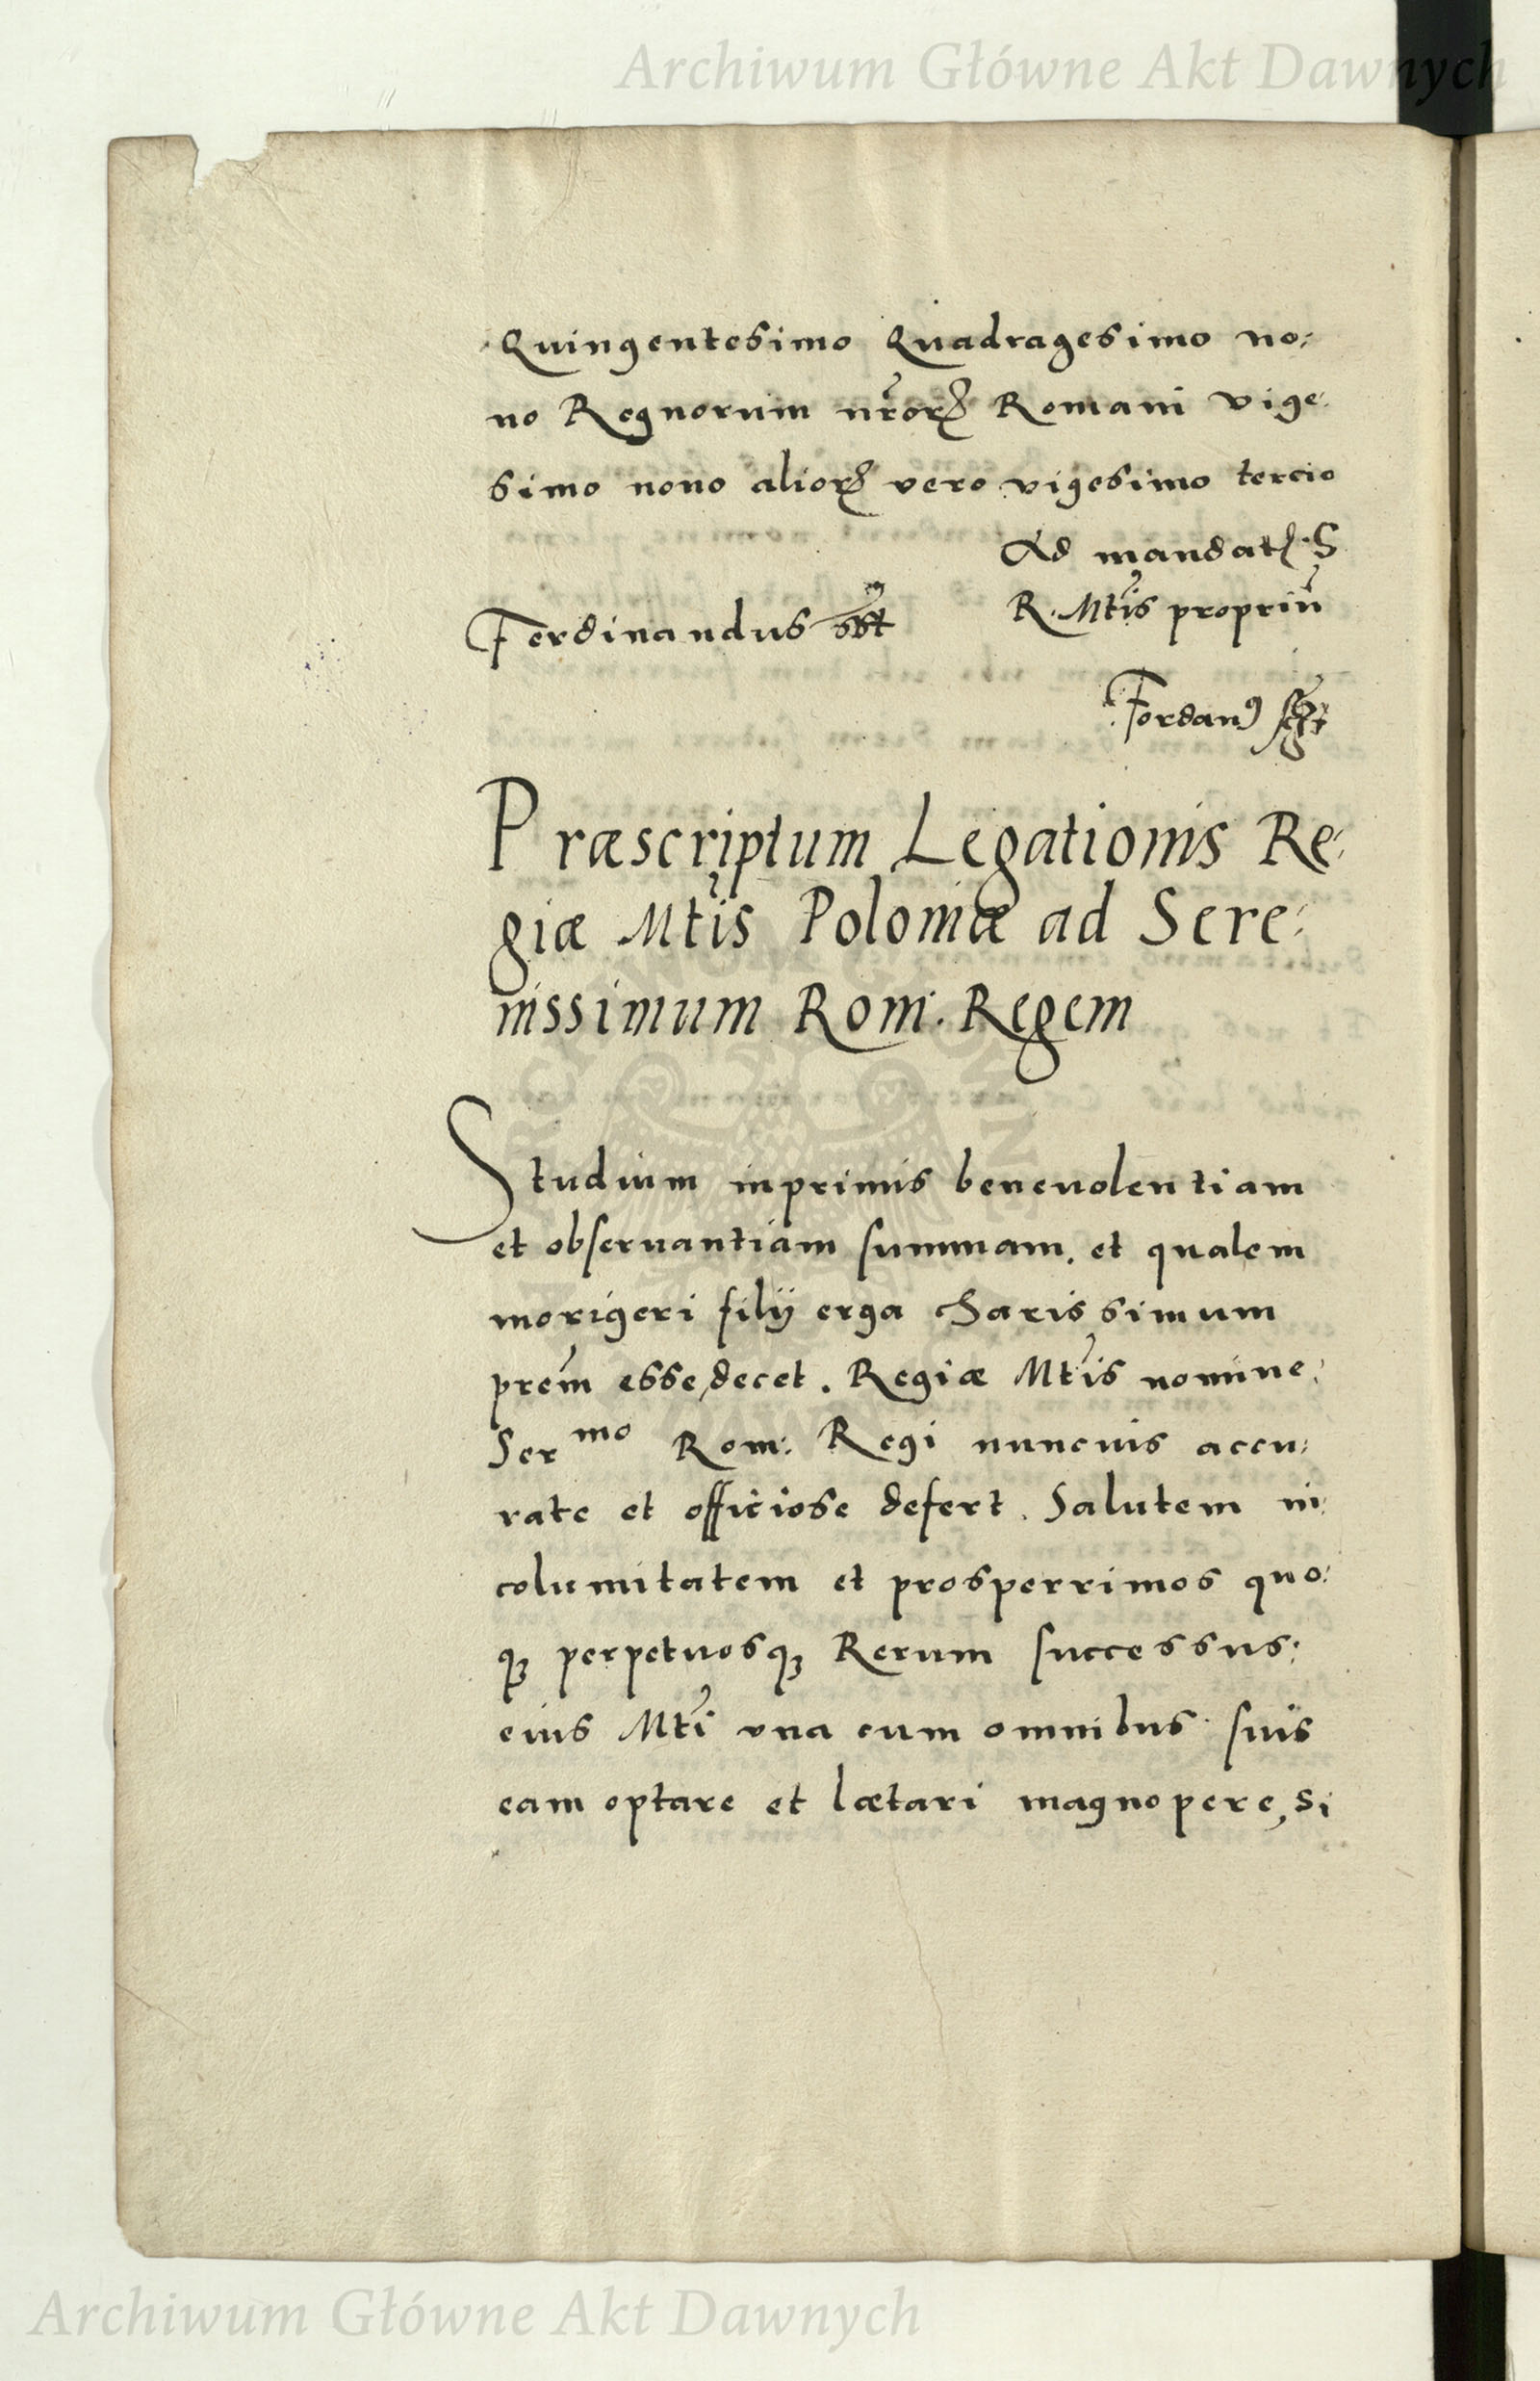 Archiwum Główne Akt Dawnych
Quingentesimo Quadragesimo no:
no Regnorum nr̃orꝝ Romani vige:
simo nono aliorꝝ vero vigesimo tercio
Ad mandat. S
R. Mtis propriũ
Ferdinandus
Jordanꝰ
Præscriptum Legationis Re:
giæ Mtis Poloniæ ad Sere:
nissimum Rom. Regem
Studium inprimis beneuolentiam
et obseruantiam summam. et qualem
morigeri filij erga charissimum
prẽm esse decet. Regiæ Mtis nomine:
Ser mo Rom: Regi nuncius accu:
rate et officiose defert. Salutem in:
columitatem et prosperrimos quo:
qꝫ perpetuosqꝫ Rerum successus:
eius Mti vna cum omnibus suis
eam optare et lætari magnopere, si
Archiwum Główne Akt Dawnych